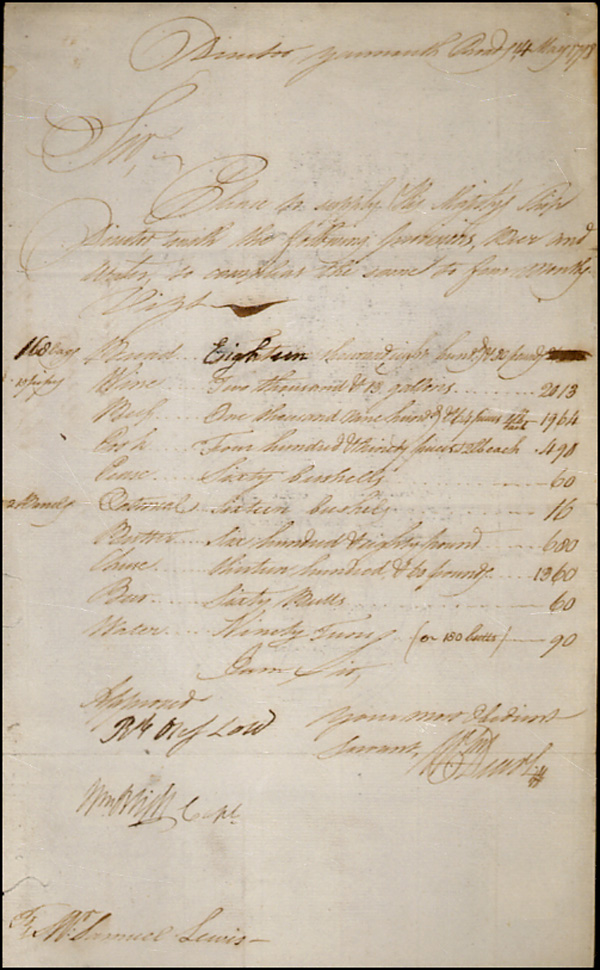 Director Yarmouth Road 14 May 1798
Sir,
Please to supply His Majtys Ship
Director with the following provisions, Beer and
Water, to compleat the same to four Months
Vizt
168 bags Bread Eighteen thousand eight hundd & 30 pounds
Wine Two thousand & 13 gallons 2013
Beef One thousand nine hundd & 64 pieces 1964
Pork Four hundred & ninety pieces 2lb each 490
Pease Sixty bushells 60
Oatmeal Sixteen bushels 16
Butter Six hundred & eighty pound 680
Cheese thirteen hundred & 60 pounds 1360
Beer Sixty Butts 60
Water Ninety Tuns (or 180 butts) 90
I am Sir,
Approved your most Obedient
Rd Onslow Servant,
Wm Bligh Capt
To Mr Samuel Lewis